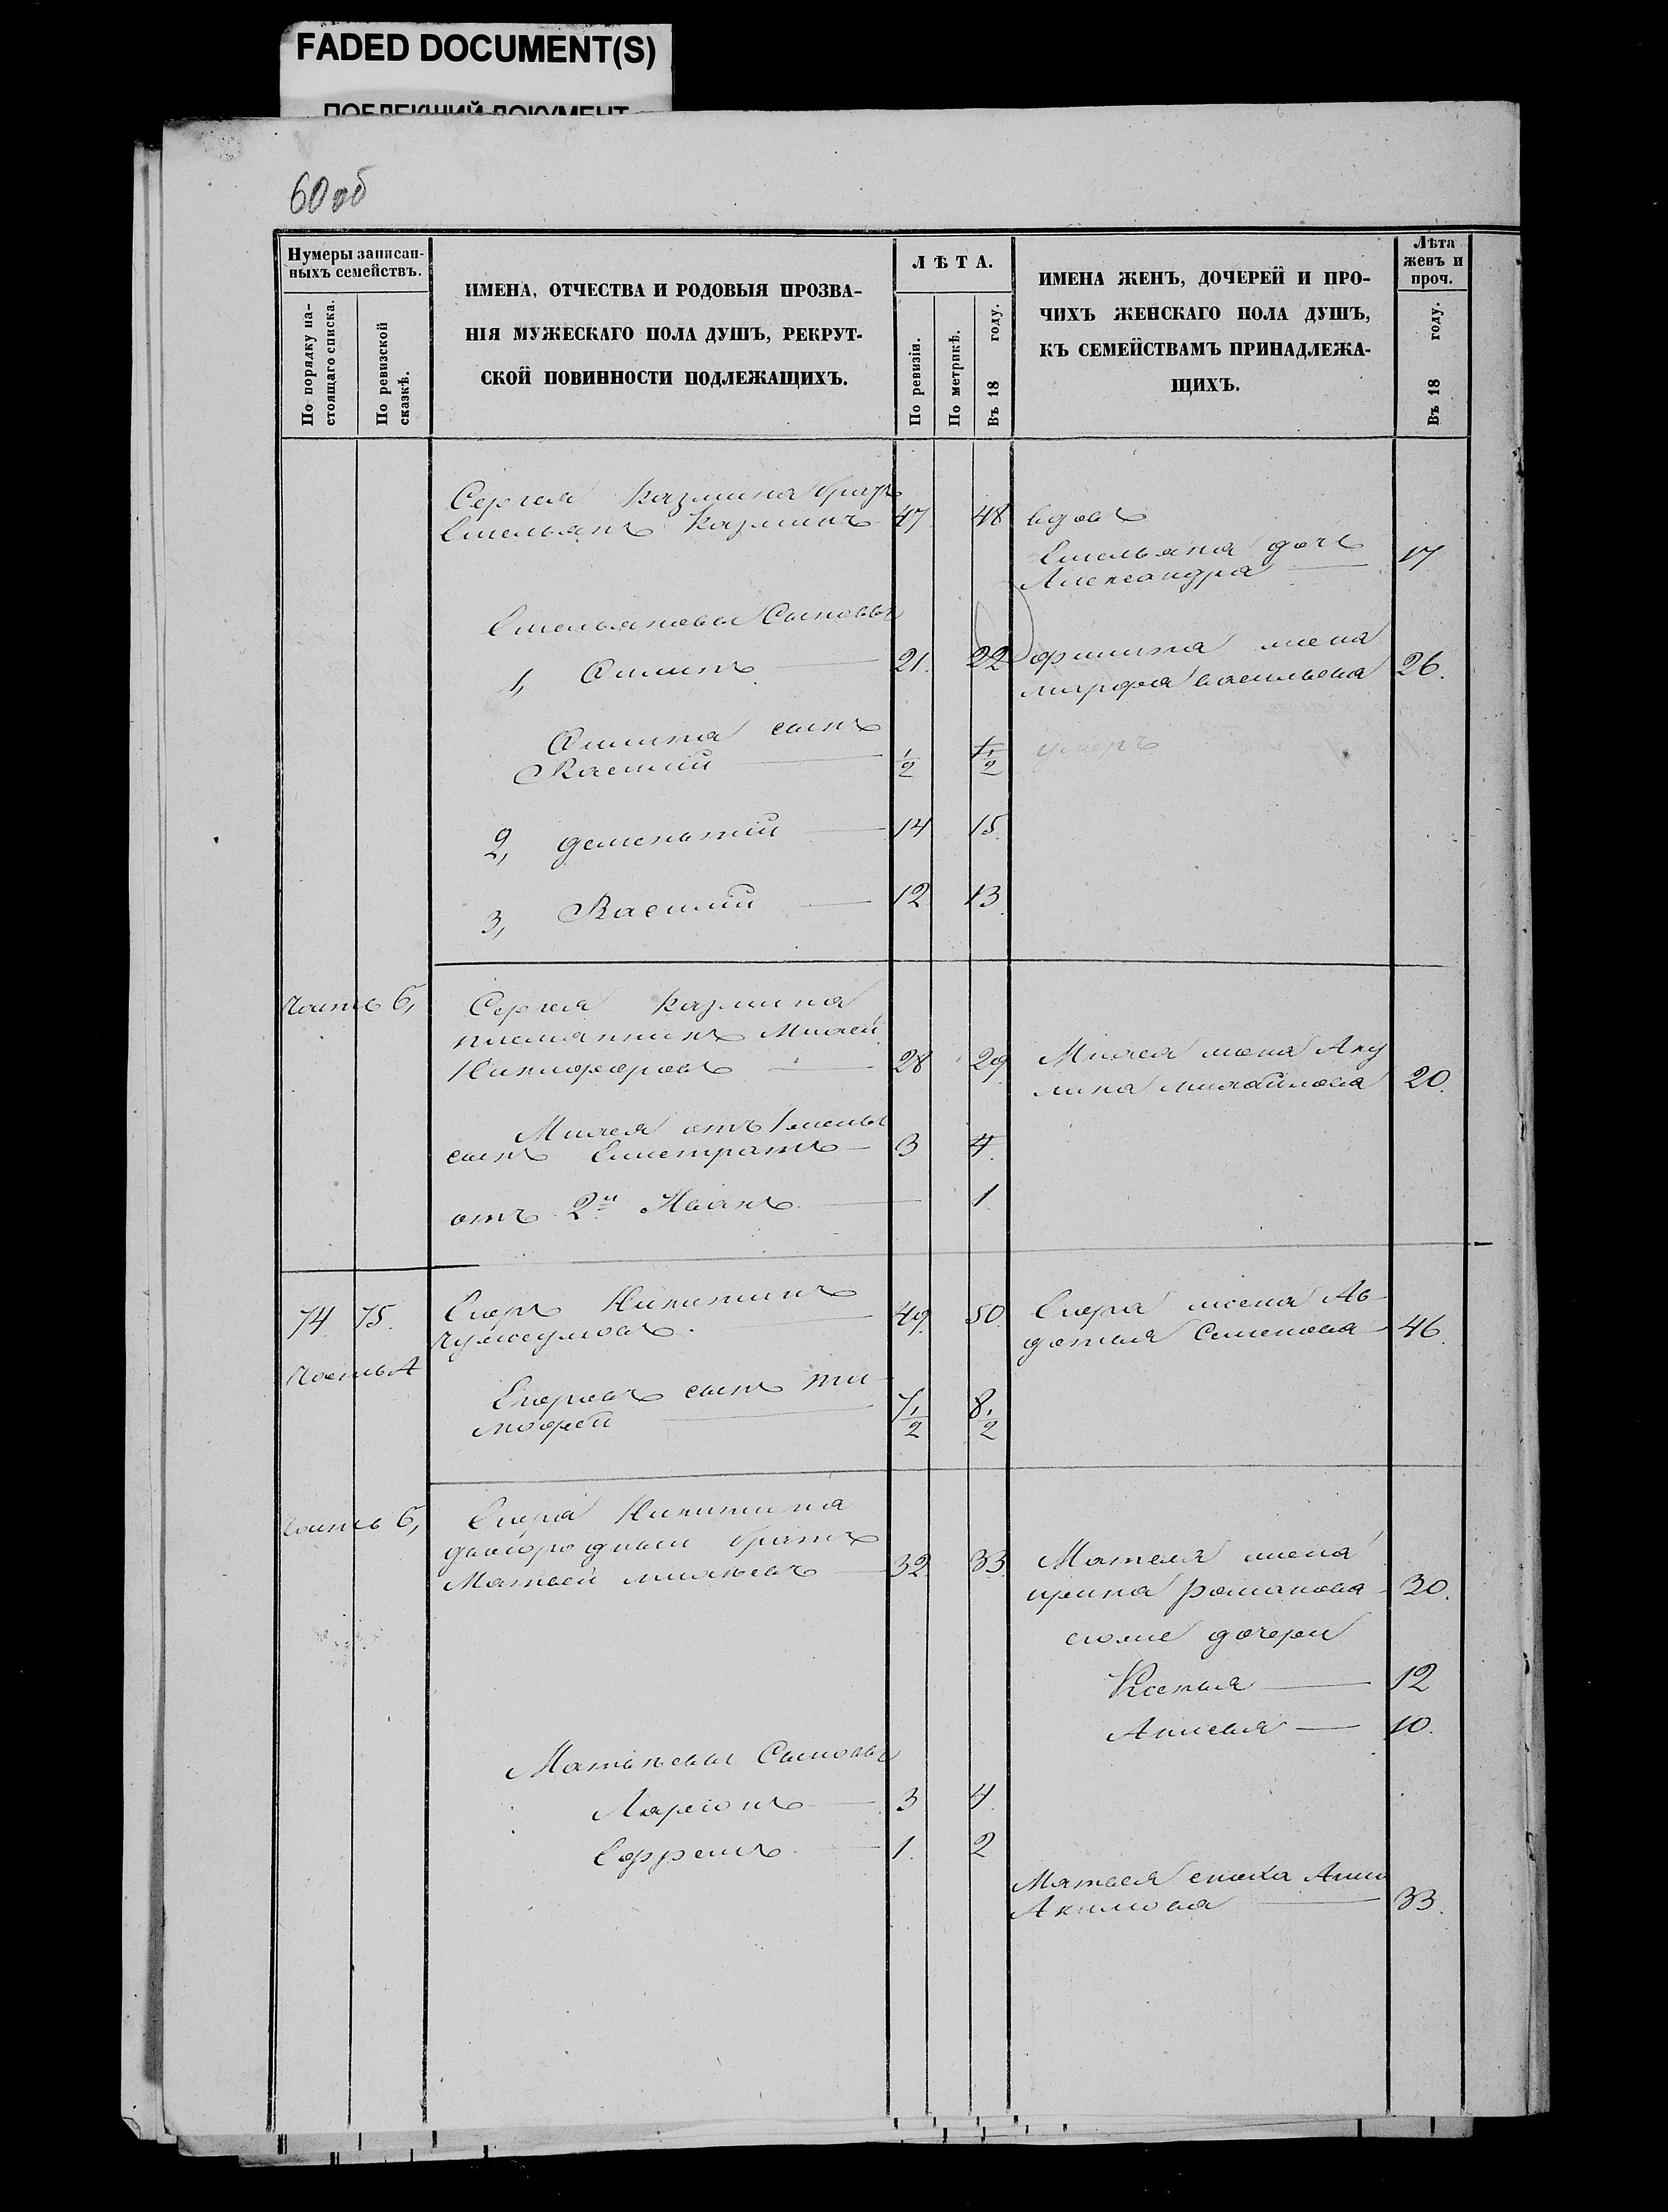 FADED DOCUMENT(S)
ПОБЛЕКШИЙ ДОКУМЕНТ
60 об
Нумеры записан-
ныхъ семействъ.
По порядку на-
стоящаго списка.
По ревизской
сказкѣ.
ИМЕНА, ОТЧЕСТВА И РОДОВЫЯ ПРОЗВА-
НІЯ МУЖЕСКАГО ПОЛА ДУШЪ, РЕКРУТ-
СКОЙ ПОВИННОСТИ ПОДЛЕЖАЩИХЪ.
ЛѢТА.
По ревизіи.
По метрикѣ.
Въ 18 году.
ИМЕНА ЖЕНЪ, ДОЧЕРЕЙ И ПРО-
ЧИХЪ ЖЕНСКАГО ПОЛА ДУШЪ,
КЪ СЕМЕЙСТВАМЪ ПРИНАДЛЕЖА-
ЩИХЪ.
Лѣта
женъ и
проч.
Въ 18 году.
Сергея Казмина братъ
Емельянъ Казминъ 47 48 вдовъ
Емельяна дочь
Александра 17
Емельяновы Сыновья
1, Филипъ 21. 22 филипа жена
марфа васильева 26.
Филипа сынъ
Василий 1/2 1 1/2 умеръ
2, дементий 14 15.
3, Василий 12 13.
Часть Б, Сергея Казмина
племянникъ Михей
Никифоровъ 28 29 Михея жена Аку
лина михайлова 20.
Михея отъ 1 жены
сынъ Елистратъ 3 4.
отъ 2й Иванъ 1
74 75. Егоръ Никитинъ 49. 50. Егора жена Ав
дотья Семенова 46.
Часть А
Егоровъ сынъ ти
мофей 7 1/2 8 1/2
Часть Б, Егора Никитина
двоюродный братъ
Матвей михѣевъ 32 33 Матвея жена
ирина романова 30.
дочери
Ксенья 12
10.
Матвѣевы Сыновья
Ларионъ 3 4.
Ефремъ 1. 2
Матвея сноха Анна
Акимова 33.